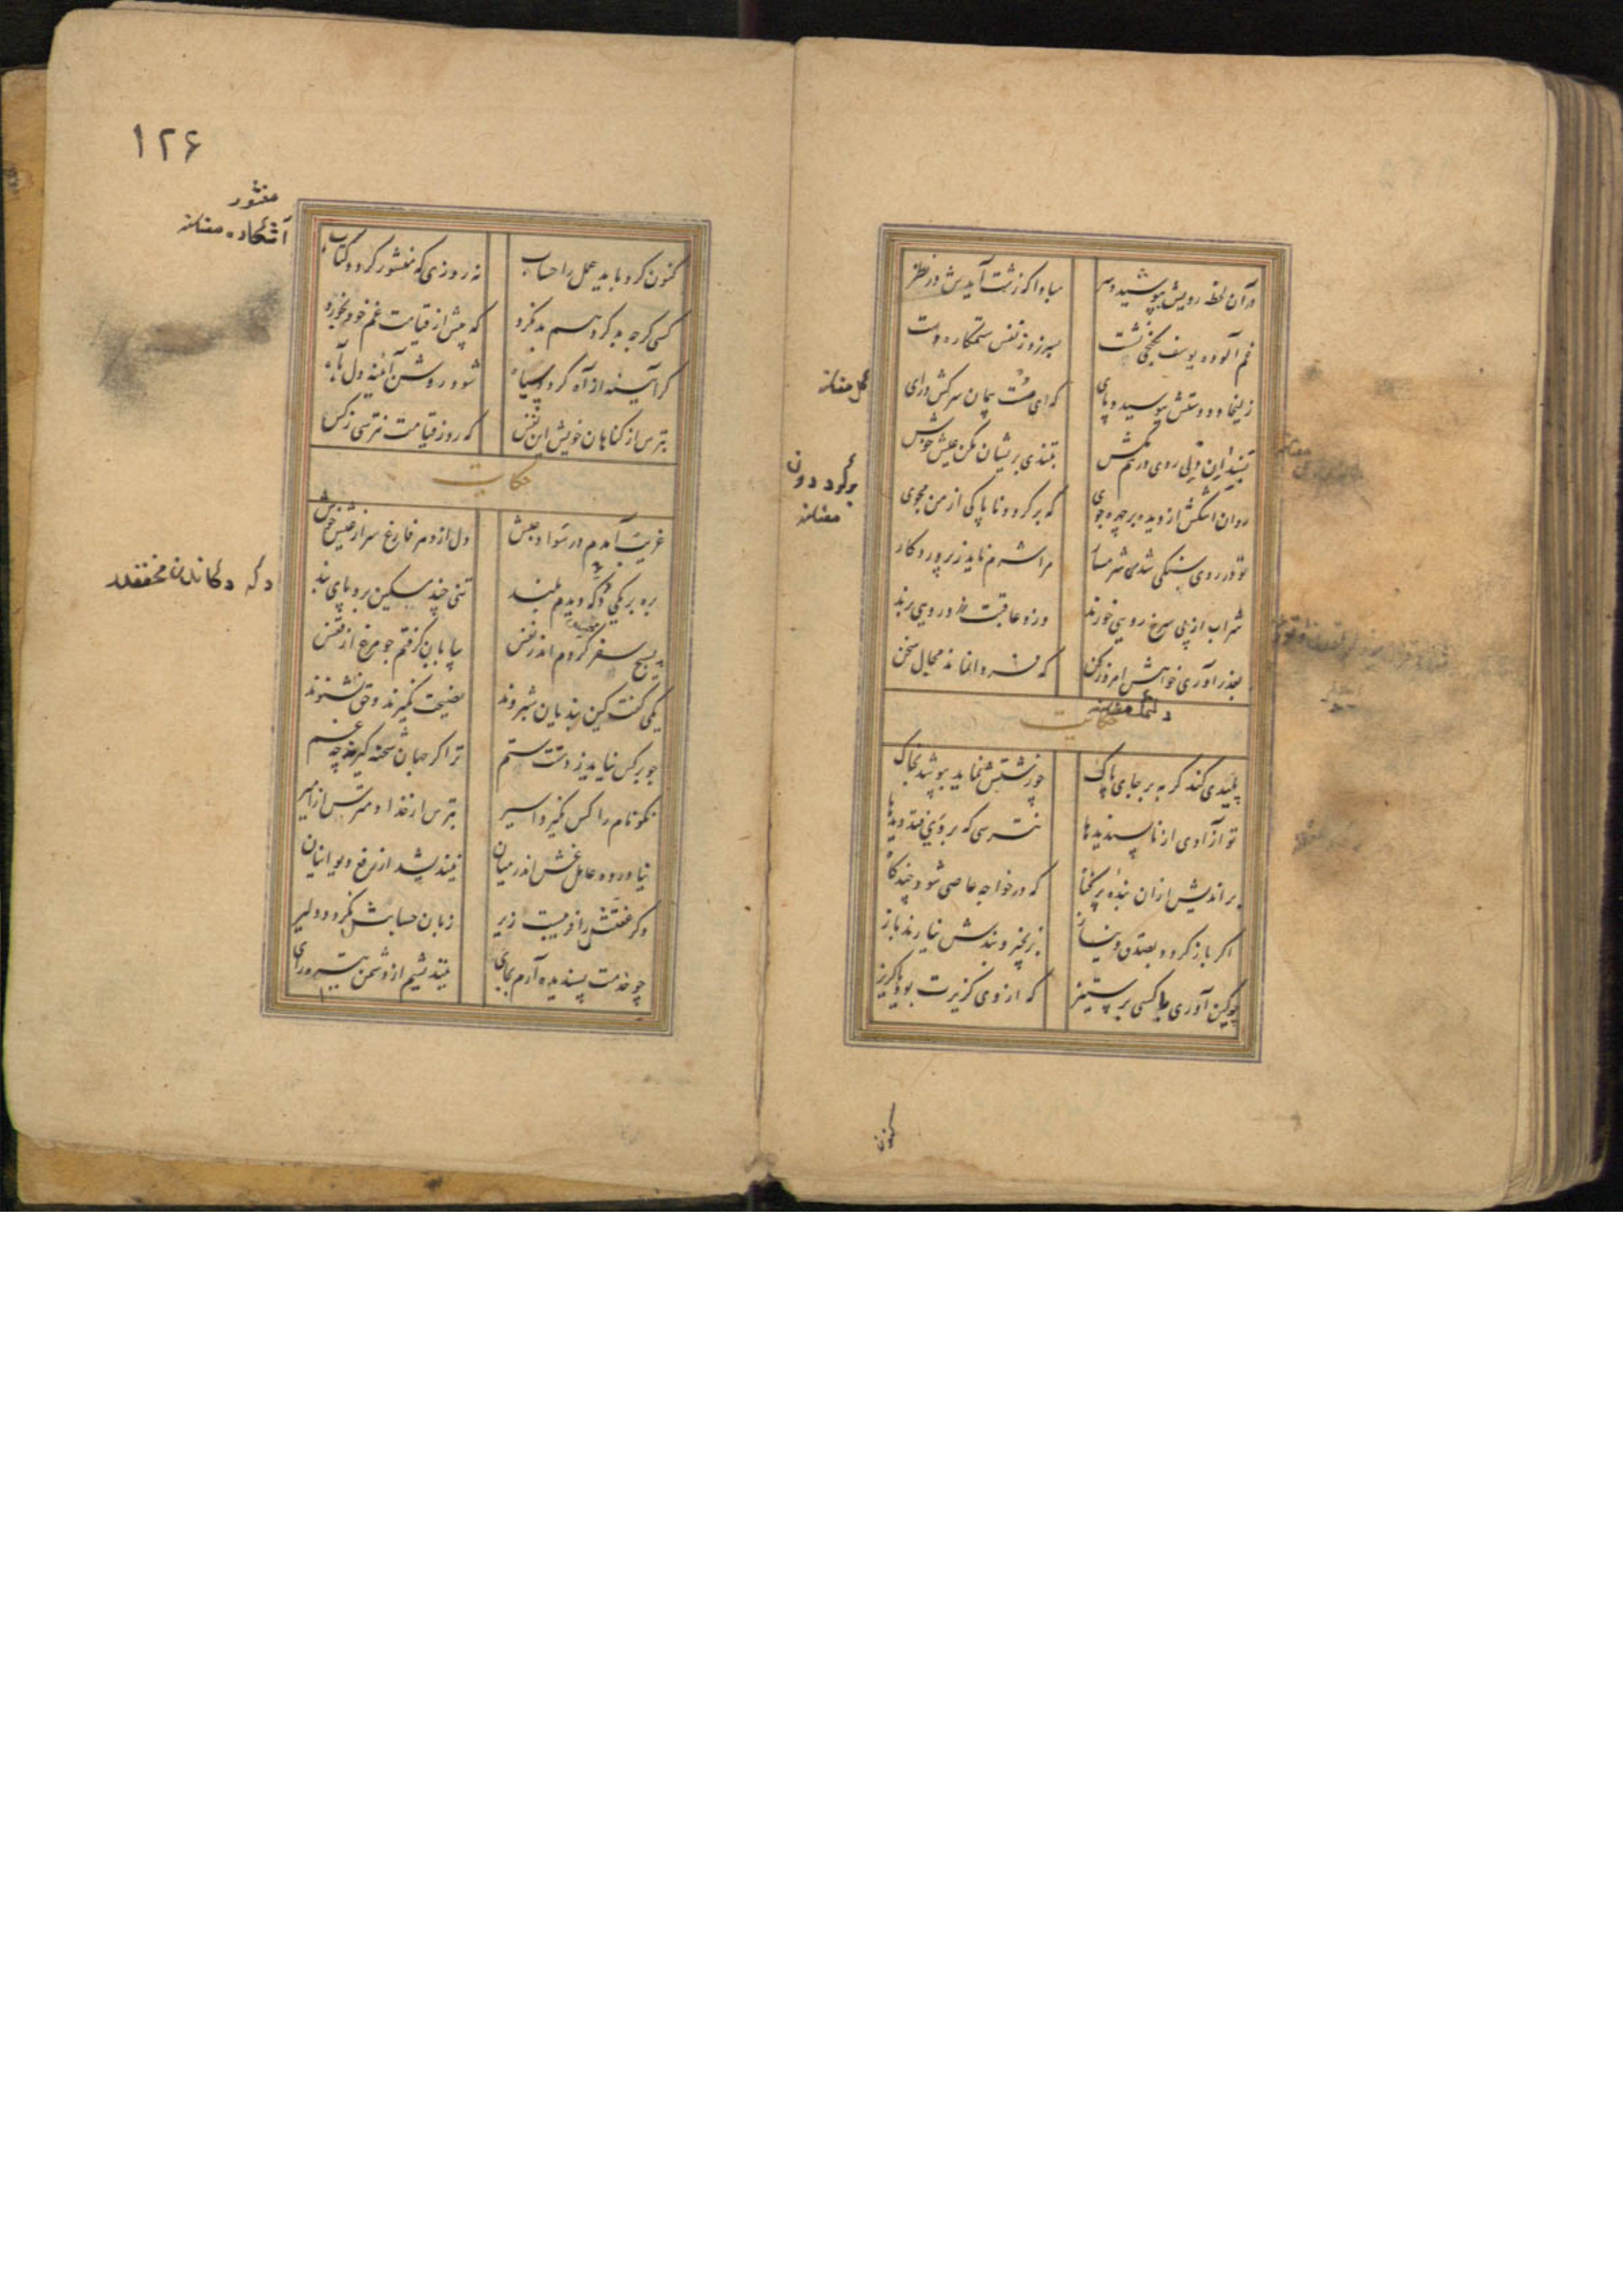 در آن لحظه رویش بپوشید و سر مبادا که زشت آیدش در نظر
غم آلوده یوسف بکنجی نشست بسر بر ز نفس ستمکاره دست
زلیخا دو دستش ببوسید و پای که ای سست پیمان سرکش درای
بسندان دلی روی در هم مکش بتندی پریشان مکن عیش خوش
روان اشکش از دیده بر چهره جوی که برگرد و ناپاکی از من مجوی
تو در روی سنگی شدی شرمسار مرا شرم ناید ز پروردگار
شراب از پی سرخ رویی خورند وزو عاقبت زرد رویی برند
بعذر آوری خواهش امروز کن که فردا نماند مجال سخن
حکایت
پلیدی کند گربه بر جای پاک چو زشتش نماید بپوشد بخاک
تو آزادی از ناپسندیدها نترسی که بر وی فتد دیدها
بر اندیش از آن بنده پر گناه که در خواجه عاصی شود چندگاه
اگر باز گردد بصدق و نیاز بزنجیر و بندش نیارند باز
چو کین آوری با کسی بر ستیز که از وی گزیرت بود یا گریز
کنون
برگردون
۱۲۶
منثور
کنون کرد باید عمل را حساب نه روزی که منشور گردد کتاب
کسی گرچه بد کرد هم بد نکرد که پیش از قیامت غم خود بخورد
گر آیینه از آه گردد سیاه شود روشن آینه دل بآه
بترس از گناهان خویش این نفس که روز قیامت نترسی ز کس
حکایت
غریب آمدم در سواد حبش دل از دهر فارغ سر از عیش خوش
بره بر یکی دکه دیدم بلند تنی چند مسکین برو پای بند
بسیج سفر کردم اندر نفس بیابان گرفتم چو مرغ از قفس
یکی گفت کین بندیان شبروند نصیحت نگیرند و حق نشنوند
چو بر کس نیاید ز دستت ستم ترا گر جهان شحنه گیرد چه غم
نکو نام را کس نگیرد اسیر بترس از خدا و مترس از امیر
نیاورده عامل غش اندر میان نیندیشد از رفع دیوانیان
وگر عفتش را فریبست زیر زبان حسابش نگردد دلیر
چو خدمت پسندیده آرم بجای نیندیشم از دشمن تیره رای